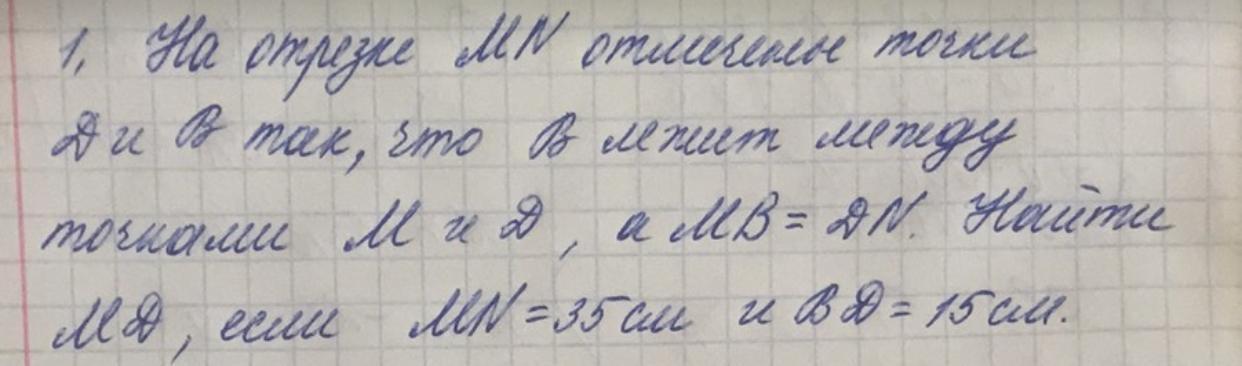 1. На отрезке MN отмечены точки
D и B так, что B лежит между
точками M и D, а MB = DN. Найти
MD, если MN = 35 см и BD = 15 см.